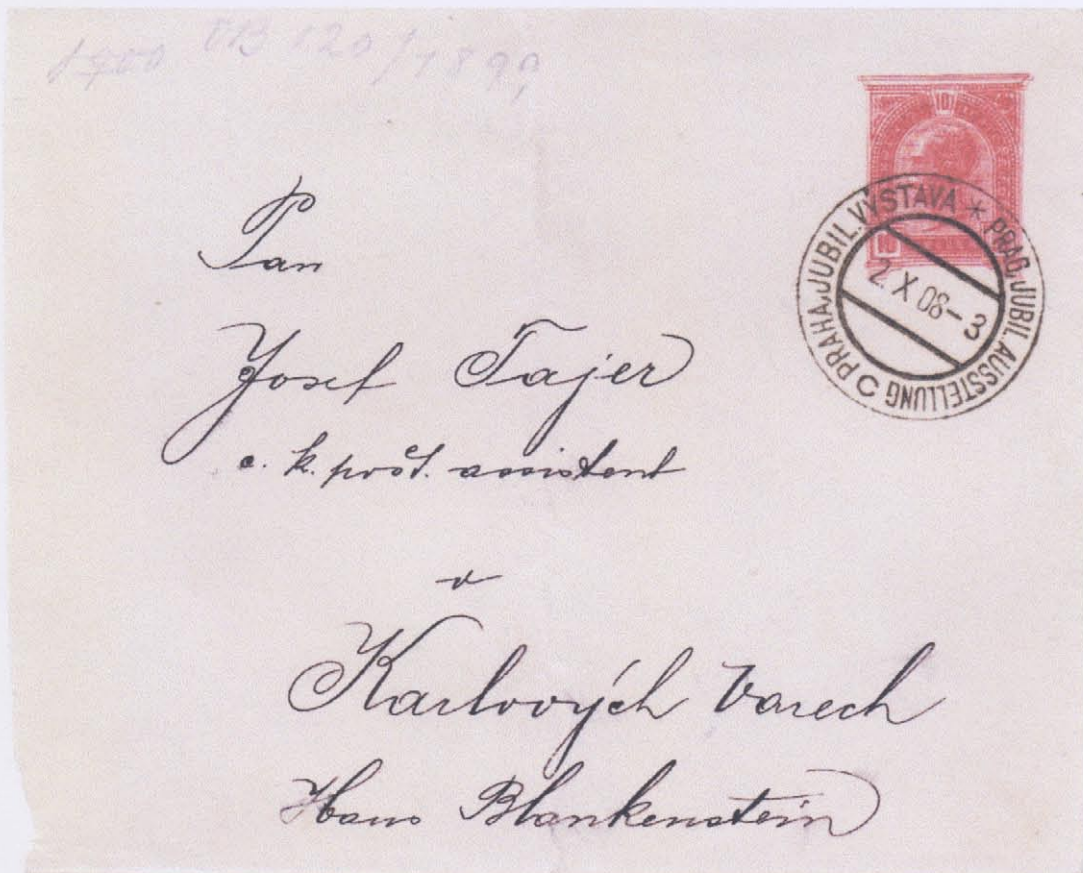 1899
10
10
PRAHA, JUBIL. VÝSTAVA * PRAG, JUBIL. AUSSTELLUNG C
2.X 08-3
Pan
Josef Tajer
c. k. pošt. assistent
v
Karlových Varech
Haus Blankenstein